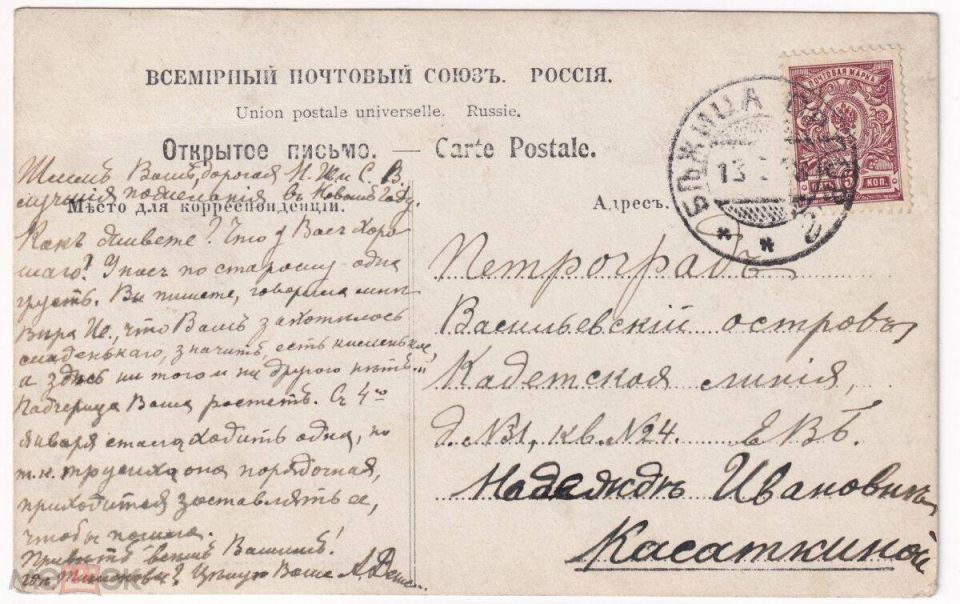 ВСЕМІРНЫЙ ПОЧТОВЫЙ СОЮЗЪ. РОССІЯ.
Union postale universelle. Russie.
Открытое письмо. — Carte Postale.
Мѣсто для корреспонденціи.
Адресъ.
ПОЧТОВАЯ МАРКА
5 КОП.
БѢЖИЦА
13
Шлемъ Вамъ, дорогая Н. И. и С. В.
лучшія пожеланія въ Новомъ Году.
Какъ живете? Что у Васъ хоро-
шаго? У насъ по старому - одна
грусть. Вы пишете, говорила мнѣ
Вѣра Ив., что Вамъ захотѣлось
сладенькаго, значитъ, есть кисленькое,
а здѣсь ни того и ни другого нѣтъ...
Падчерица Ваша растетъ. Съ 4го
января стала ходить одна, но
т.к. трусиха она порядочная,
приходится заставлять ее,
чтобы пошла.
Привѣтъ всѣмъ Вашимъ!
Цѣлую Ваше А.
Петроградъ
Васильевскій островъ,
Кадетская линія,
д. №31, кв. №24. ЕВБ.
Надеждѣ Ивановнѣ
Касаткиной